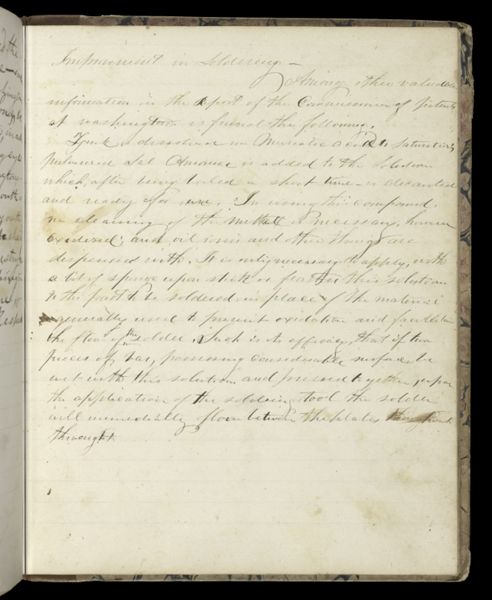 Improvement in Soldering —
Among other valuable
information in the report of the Commissioner of patents
at washington is found the following.
Zinc is dissolved in Muriatic acid to saturation,
pulverised Sal Amoniac is added to the solution
which, after being boiled a short time is decanted
and ready for use. In using this compound,
no cleaning of the mettle is necessary, however
oxidized; and oil rosin and other things are
dispensed with. It is only necessary to apply, with
a bit of sponge upon stick or feather this solution
to the part to be soldered in place of the material
generally used to prevent oxidation and facilitate
the flow of the solder. Such is its efficacy, that if two
pieces of, possessing considerable surface be
wet with this solution and pressed together, upon
the application of the soldering tool the solder
will immediatly flow between the plates
throught